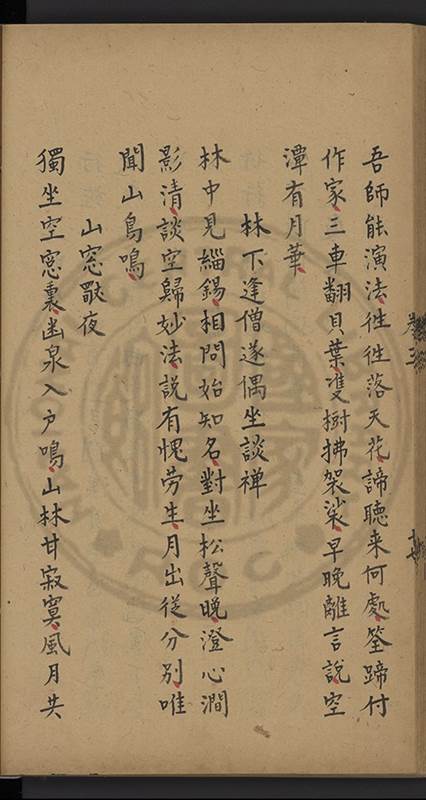 吾師能演法往往落天花諦聽来何處筌蹄付
作家三車翻貝葉雙樹拂袈裟早晚離言說空
潭有月華
林下逢僧遂偶坐談禅
林中見緇錫相問始知名對坐松聲晚澄心澗
影清談空歸妙法說有愧劳生月出從分别唯
聞山鳥鳴
山窓歇夜
獨坐空窓裏幽泉入户鳴山林甘寂寞風月共